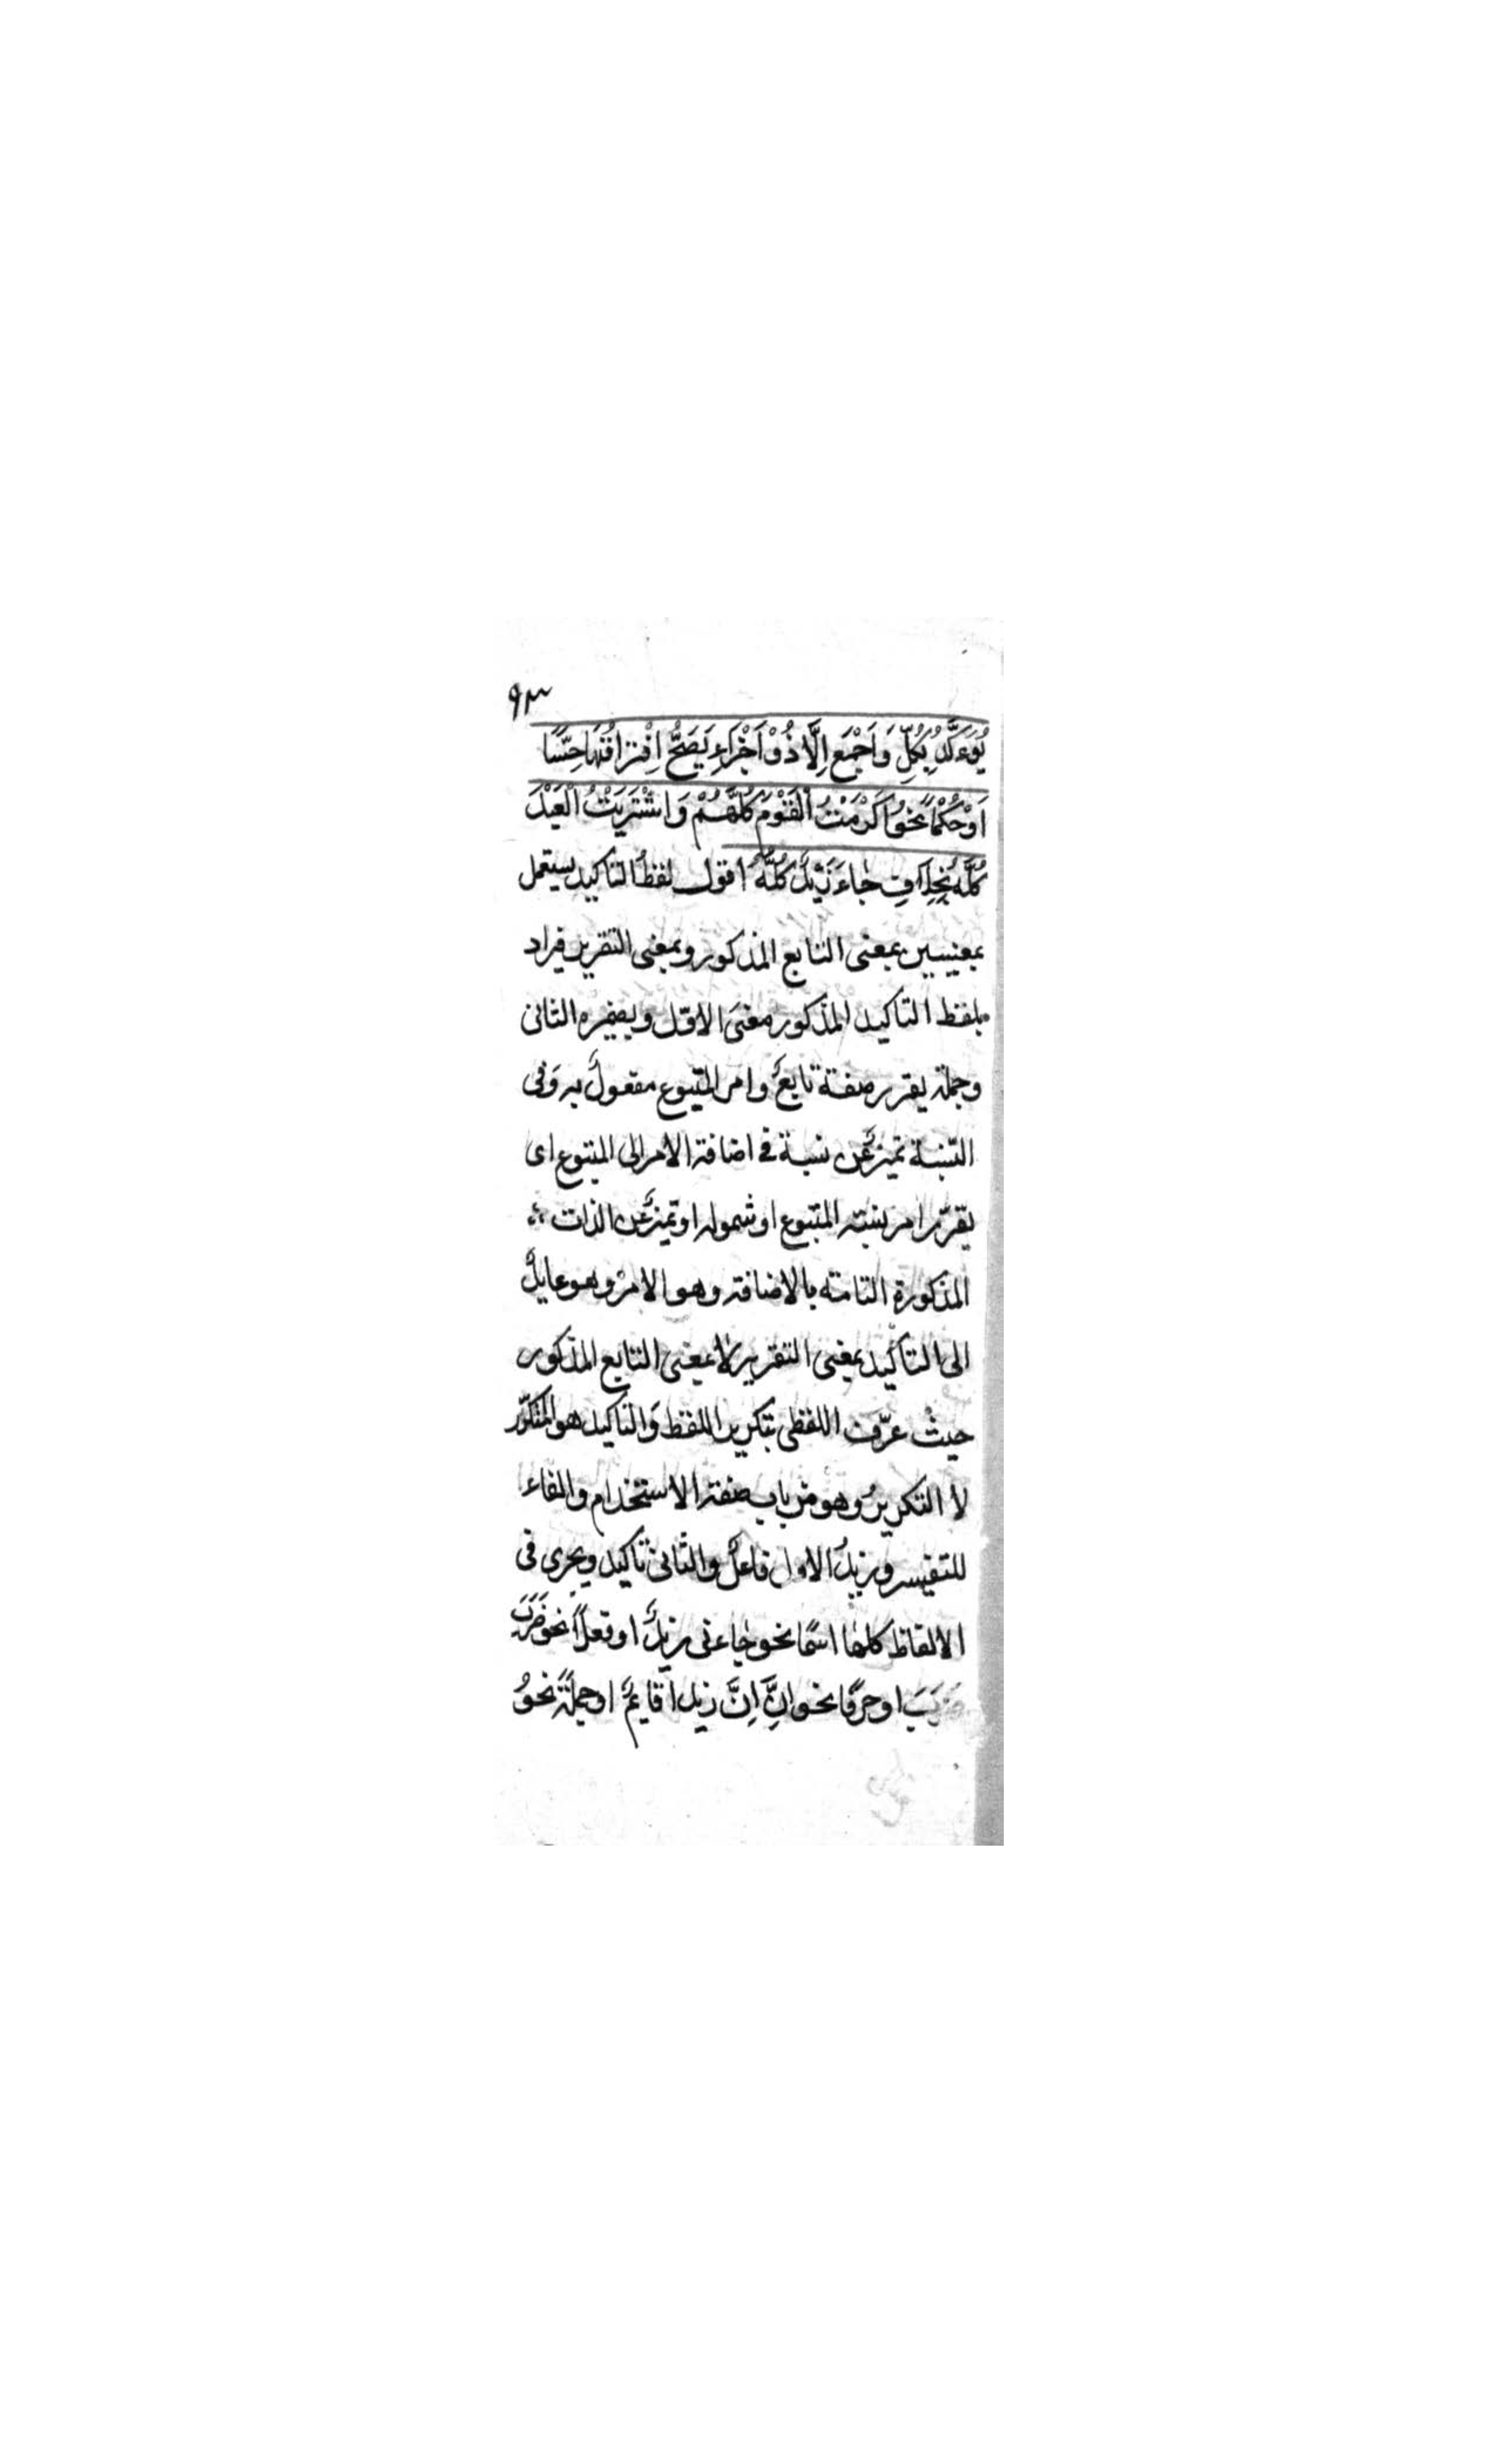 ٩٣
يُؤَكَّدُ بِكُلٍّ وَاَجْمَعَ اِلَّا ذُوْ اَجْزَاءٍ يَصَحُّ اِفْتِرَاقُهَا حِسًّا
اَوْ حُكْمًا نَحْوُ اَكْرَمْتُ الْقَوْمَ كُلَّهُمْ وَاشْتَرَيْتُ الْعَبْدَ
كُلَّهُ بِخِلَافِ جَاءَ زَيْدٌ كُلُّهُ اقول لفظ التاكيد يستعمل
بمعنيين بمعنى التابع المذكور وبمعنى التقرير فيراد
بلفظ التاكيد المذكور معنى الاوّل وبضميره الثانى
وجملة يقرر صفة تابعٌ وامر المتبوع مفعولٌ به وفى
النسبة تميزٌ عن نسبة فى اضافة الامر الى المتبوع اى
يقرّر امر نسبته المتبوع او شموله او تميزٌ عن الذات
المذكورة التامة بالاضافة وهو الامر وهو عايدٌ
الى التاكيد بمعنى التقرير لا بمعنى التابع المذكور
حيث عرّف اللفظى بتكرير اللفظ والتاكيد هو المكرّر
لا التكرير وهو من باب صفة الاستخدام والفاء
للتفيسر وزيدُ الاول فاعلٌ والثانى تاكيد ويجرى فى
الالفاظ كلها اسمًا نحو جاءنى زيدٌ او فعلاً نحو ضَرَبَ
ضَرَبَ او حرفًا نحو اِنَّ اِنَّ زيدا قايمٌ او جملةً نحوُ